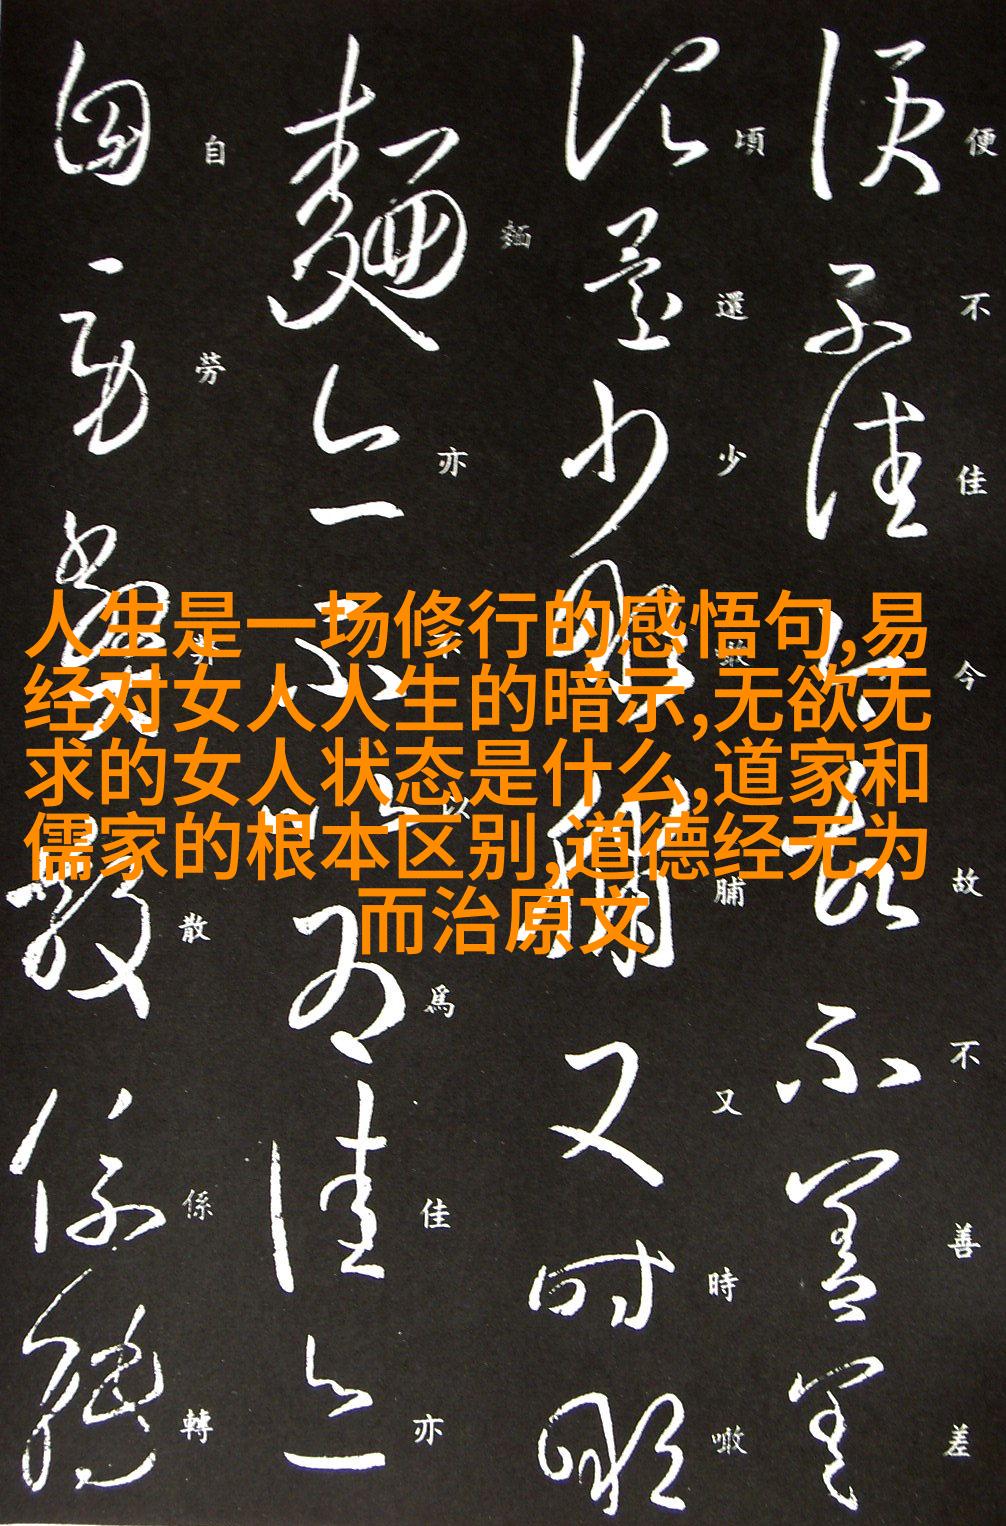 人生是一场修行的感悟句,易
经对女人人生的暗示,无欲无
求的女人状态是什么,道家和
儒家的根本区别,道德经无为
而治原文
便不佳今故不善差
頃還少噉脯又時噉
麵亦不以爲佳亦
自勞弊散係轉